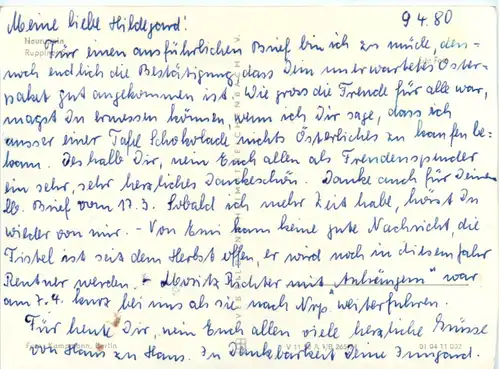 Meine liebe Hildegard! 9.4.80
Neuruppin
Ruppiner
Für einen ausführlichen Brief bin ich zu müde, den-
noch endlich die Bestätigung, dass Dein unerwartetes Oster-
paket gut angekommen ist. Wie gross die Freude für alle war,
magst Du ermessen können, wenn ich Dir sage, dass ich
ausser einer Tafel Schokolade nichts Österliches zu kaufen be-
kam. Deshalb Dir, nein Euch allen als Freudenspender
ein sehr, sehr herzliches Dankeschön. Danke auch für Deinen
lb. Brief vom 17.3. Sobald ich mehr Zeit habe, hörst Du
wieder von mir. - Von Emi kam keine gute Nachricht, die
Fistel ist seit dem Herbst offen, er wird noch in diesem Jahr
Rentner werden. - Moritz Richter mit "Anhängern" war
am 7.4. kurz bei uns als sie nach Nrp. weiterfuhren.
Für heute Dir, nein Euch allen viele herzliche Grüsse
von Haus zu Haus. In Dankbarkeit Deine Irmgard.
Berlin
01 04 11 032